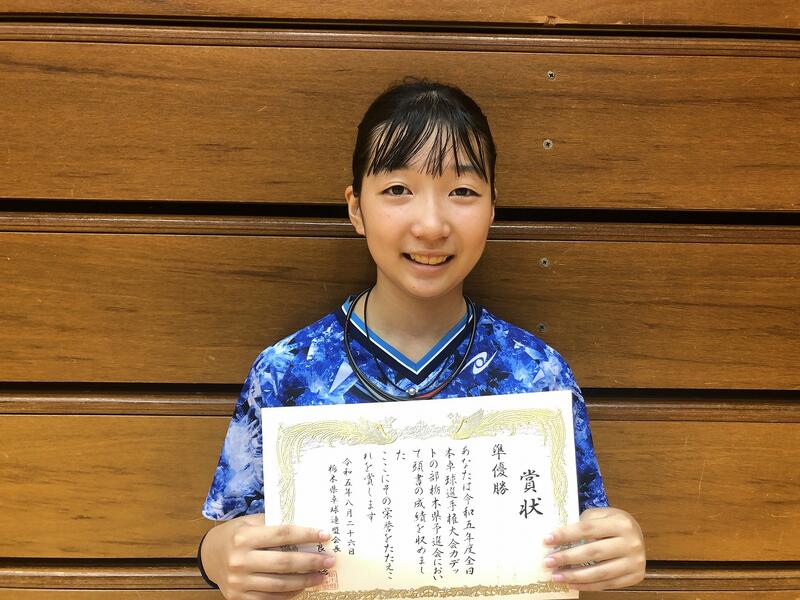 賞状
準優勝
あなたは令和五年度全日
本卓球選手権大会カデッ
トの部栃木県予選会におい
て頭書の成績を収めまし
た
ここにその栄誉をたたえこ
れを賞します
令和五年八月二十六日
栃木県卓球連盟会長